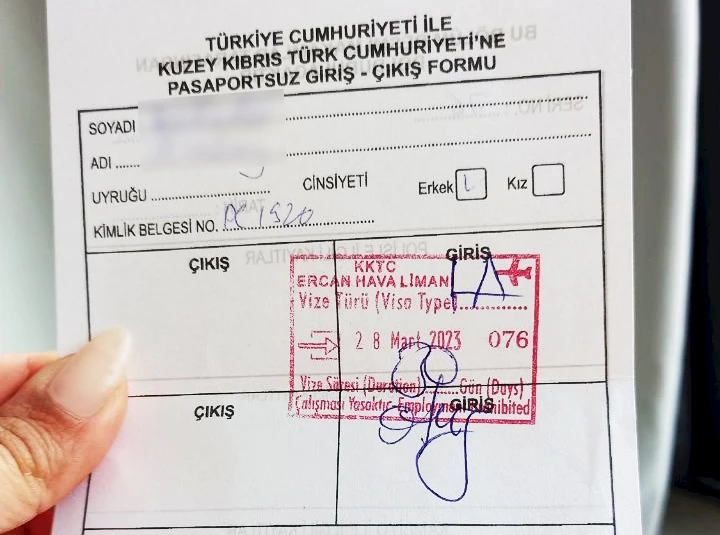 TÜRKİYE CUMHURİYETİ İLE
KUZEY KIBRIS TÜRK CUMHURİYETİ'NE
PASAPORTSUZ GİRİŞ - ÇIKIŞ FORMU
SOYADI
ADI
UYRUĞU
CİNSİYETİ Erkek Kız
KİMLİK BELGESİ NO.
ÇIKIŞ GİRİŞ
KKTC
ERCAN HAVA LİMANI
Vize Türü (Visa Type)
28 Mart 2023 076
Vize Süresi (Duration) Gün (Days)
Çalışması Yasaktır-Employment Prohibited
ÇIKIŞ GİRİŞ